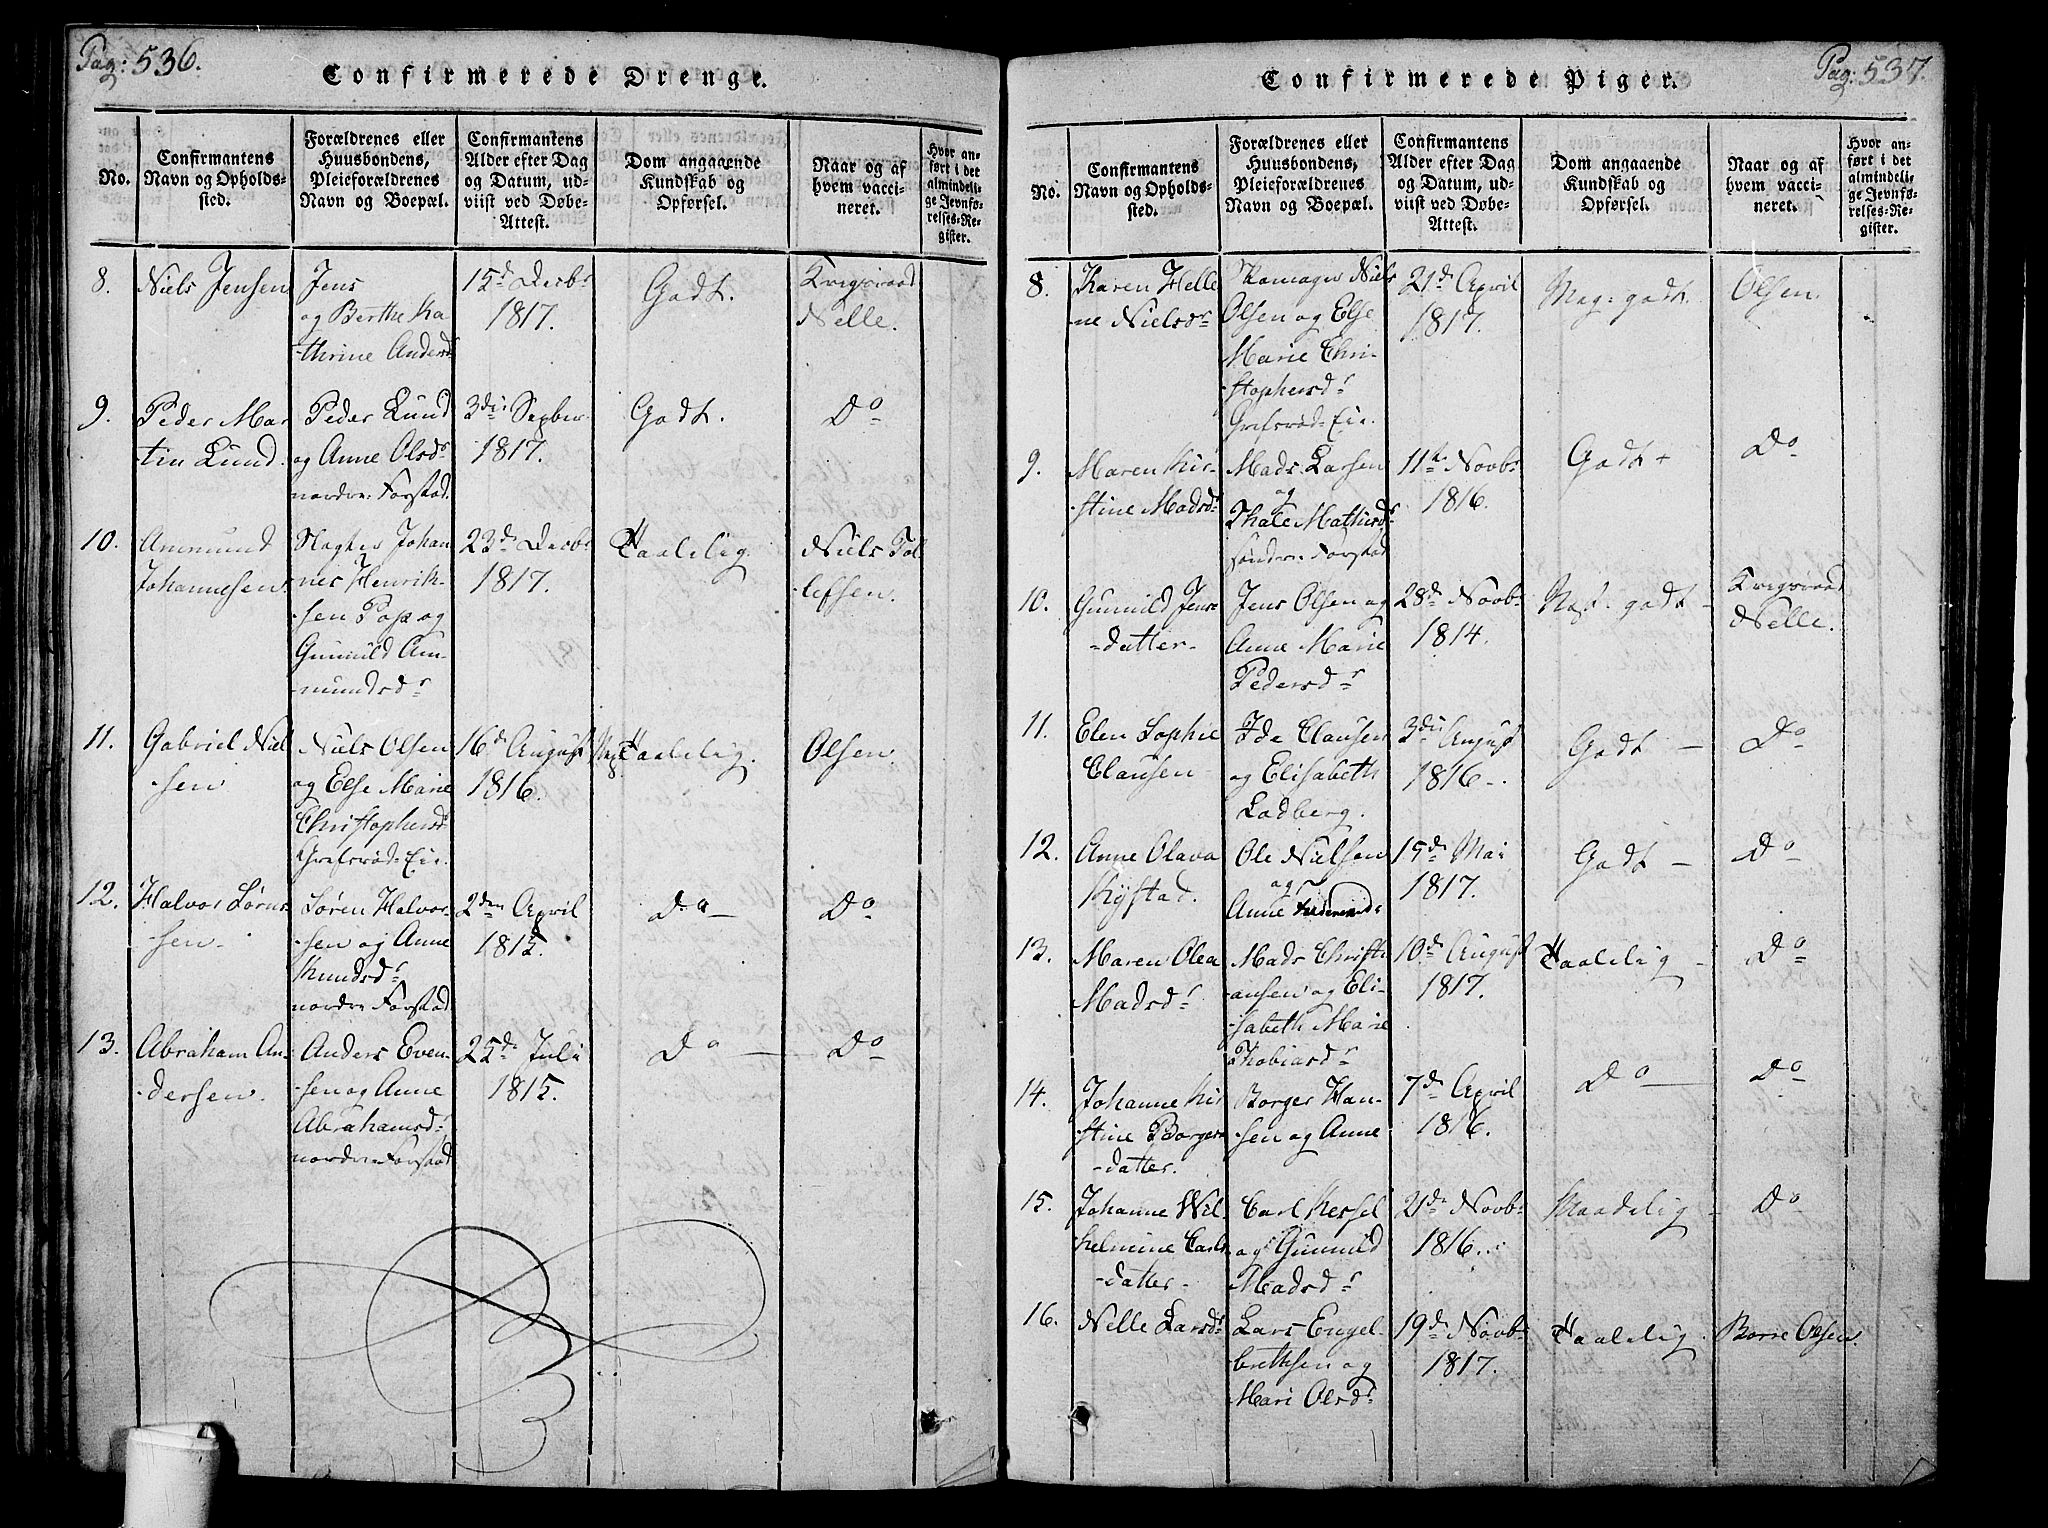 Pag: 536.
Confirmerede Drenge.
No.
Confirmantens
Navn og Opholds-
sted.
Forældrenes eller
Huusbondens,
Pleieforældrenes
Navn og Boepæl.
Confirmantens
Alder efter Dag
og Datum, ud-
viist ved Døbe-
Attest.
Dom angaaende
Kundskab og
Opførsel.
Naar og af
hvem vacci-
neret.
Hvor an-
ført i det
almindeli-
ge Jevnfø-
relses-Re-
gister.
8.
Niels Jensen
Jens
og Berthe Ka
-thrine Andersd
15d Decbr
1817.
Godt.
Krigsraad
Nelle.
9.
Peder Mar
tin Lund.
Peder Lund
og Anne Olsdr
nordre Forstad.
3die Septber
1817.
Godt.
Do
10.
Ammund
Johannesen.
Slagter Johan
nes Henrik-
sen Pop og
Gunnild Am-
-mundsdr
23d Decbr
1817.
Taalelig
Niels Tol
-lefsen.
11.
Gabriel Niel
-sen
Niels Olsen
og Else Marie
Christophersd
Grefsrød-Eie.
16d August
1816.
Taalelig.
Olsen.
12.
Halvor Søren-
sen-
Søren Halvor-
-sen og Anne
Knudsdr
nordre Forstad
2den April
1815.
Do-
Do
13.
Abraham An-
-dersen.
Anders Even-
-sen og Anne
Abrahamsd-
nordre Forstad
25d Juli
1815.
Do
Do
Pag: 537.
Confirmerede Piger.
No.
Confirmantens
Navn og Opholds-
sted.
Forældrenes eller
Huusbondens,
Pleieforældrenes
Navn og Boepæl.
Confirmantens
Alder efter Dag
og Datum, ud-
viist ved Døbe-
Attest.
Dom angaaende
Kundskab og
Opførsel.
Naar og af
hvem vacci-
neret.
Hvor an-
ført i det
almindeli-
ge Jevnfø-
relses-Re-
gister.
8.
Karen Helle
-ne Nielsdr
Skomager Niels
Olsen og Else
Marie Chri-
-stophersdr
Grefsrød-Eie.
21d April
1817.
Meg: godt
Olsen.
9.
Maren Kir-
stine Madsdr
Mads Larsen
og
Thale Mathisdr
søndre Forstad
11te Novbr
1816.
Godt
Do
10.
Gunnild Jens-
-datter-
Jens Olsen og
Anne Marie
Pedersdr
28d Novbr
1814.
godt -
Krigsraad
Nelle.
11.
Elen Sophie
Clausen-
Ide Clausen
og Elisabeth
Ladberg.
3die August
1816-.
Godt -
Do
12.
Anne Olava
Kystad.
Ole Nielsen
og
Anne
15d Mai
1817.
Godt -
Do
13.
Maren Olea
Madsdr
Mads Christi
-ansen og Eli-
-sabeth Marie
Thobiasdr
10d August
1817.
Taalelig -
Do
14.
Johanne Kir
stine Borgers
-datter.
Borger Han-
-sen og Anne
7d April
1816.
Do
Do
15.
Johanne Wil-
helmine Carls
-datter-
Carl Kessel
og Gunnild
Madsdr
21d Novbr
1816.
Maadelig -
Do
16.
Nelle Larsdr
Lars Engel-
brethsen og
Mari Olsdr
19d Novbr
1817.
Taalelig.
Borre Olsen